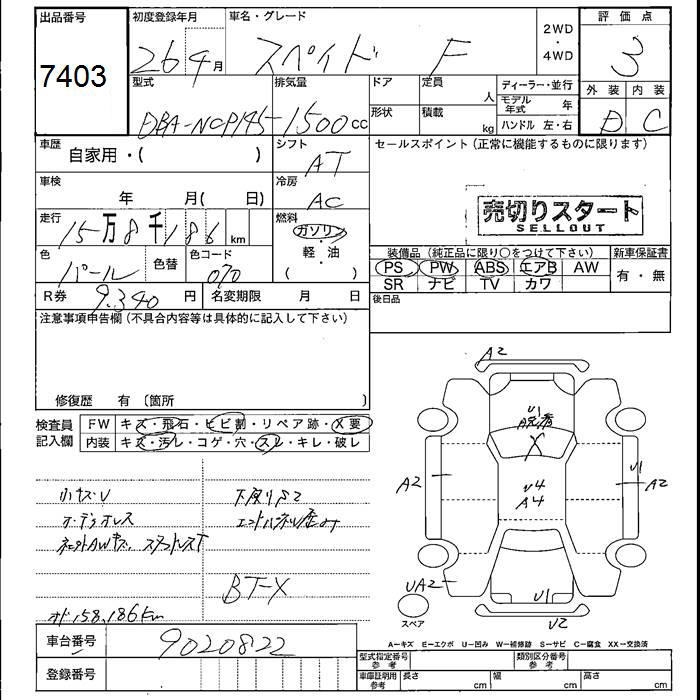 出品番号
7403
初度登録年月
26 9月
車名・グレード
スペイド F
2WD
・
4WD
評価点
3
外装 内装
D C
型式
DBA-NCP145
排気量
1500cc
ドア
形状
定員 人
積載 kg
ディーラー・並行
モデル年式 年
ハンドル 左・右
車歴 自家用・( )
シフト
AT
セールスポイント (正常に機能するものに限ります)
車検 年 月( 日)
冷房
AC
売切りスタート
SELLOUT
走行
15万8千186km
燃料
ガソリン
軽・油
( )
色
パール
色替
色コード
070
装備品(純正品に限り○をつけて下さい)
PS PW ABS エアB AW
SR ナビ TV カワ
新車保証書
有・無
R券 9,340 円
名変期限 月 日
後日品
注意事項申告欄(不具合内容等は具体的に記入して下さい)
修復歴 有 〔箇所 〕
検査員記入欄
FW キズ・飛石・ヒビ割・リペア跡・X要
内装 キズ・汚レ・コゲ・穴・スレ・キレ・破レ
小キズU
オーディオレス
下廻りS2
BT-X
158,186km
車台番号 9020822
登録番号
A2
U1
X
U4
A4
A2
U1
A2
UA2
U1
U2
スペア
A-キズ E-エクボ U-凹み W-補修跡 S-サビ C-腐食 XX-交換済
型式指定番号 参考
類別区分番号 参考
車庫証明用 参考
長さ cm
幅 cm
高さ cm